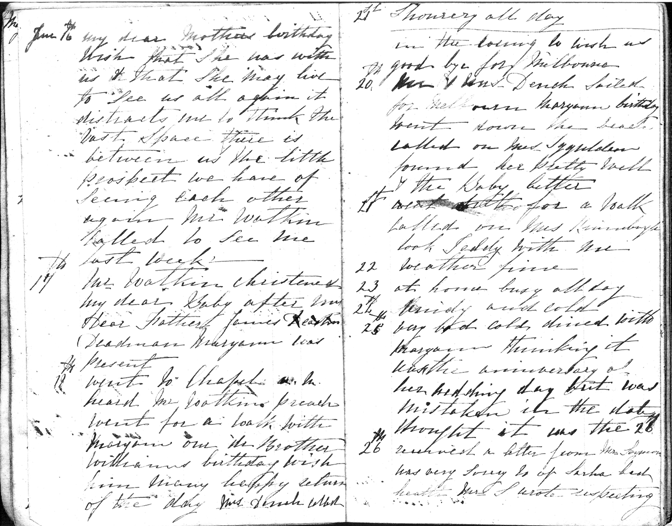 June 16th my dear Mothers birthday
Wish that She was with
us & that She may live
to See us all again it
distracts me to think the
Vast Space there is
between us the little
prospect we have of
Seeing each other
again Mr Wathin
Called to See me
last week
17th Mr Wathin christened
my dear Baby after my
dear Father James
Deadman Maryann was
present
18th went to Chapel
heard Mr Wathin preach
went for a walk with
Maryann our dr Brother
Williams birthday wish
him many happy return
of the day Mrs
21st Showery all day
in the evening to wish us
good bye for Milbourne
20th Mr & Mrs Dench Sailed
for Maryann birthday
went down the beach
called on Mrs
found her Pretty Well
& the Baby better
21st went for a walk
Called on Mrs
took with me
22 weather fine
23 at home busy all day
24th windy and cold
25th very bad cold, dined with
Maryann thinking it
was the anniversary of
her wedding day but was
mistaken in the date
thought it was the 26
26th received a letter from Mrs
was very Sorry to
health Mrs wrote respecting